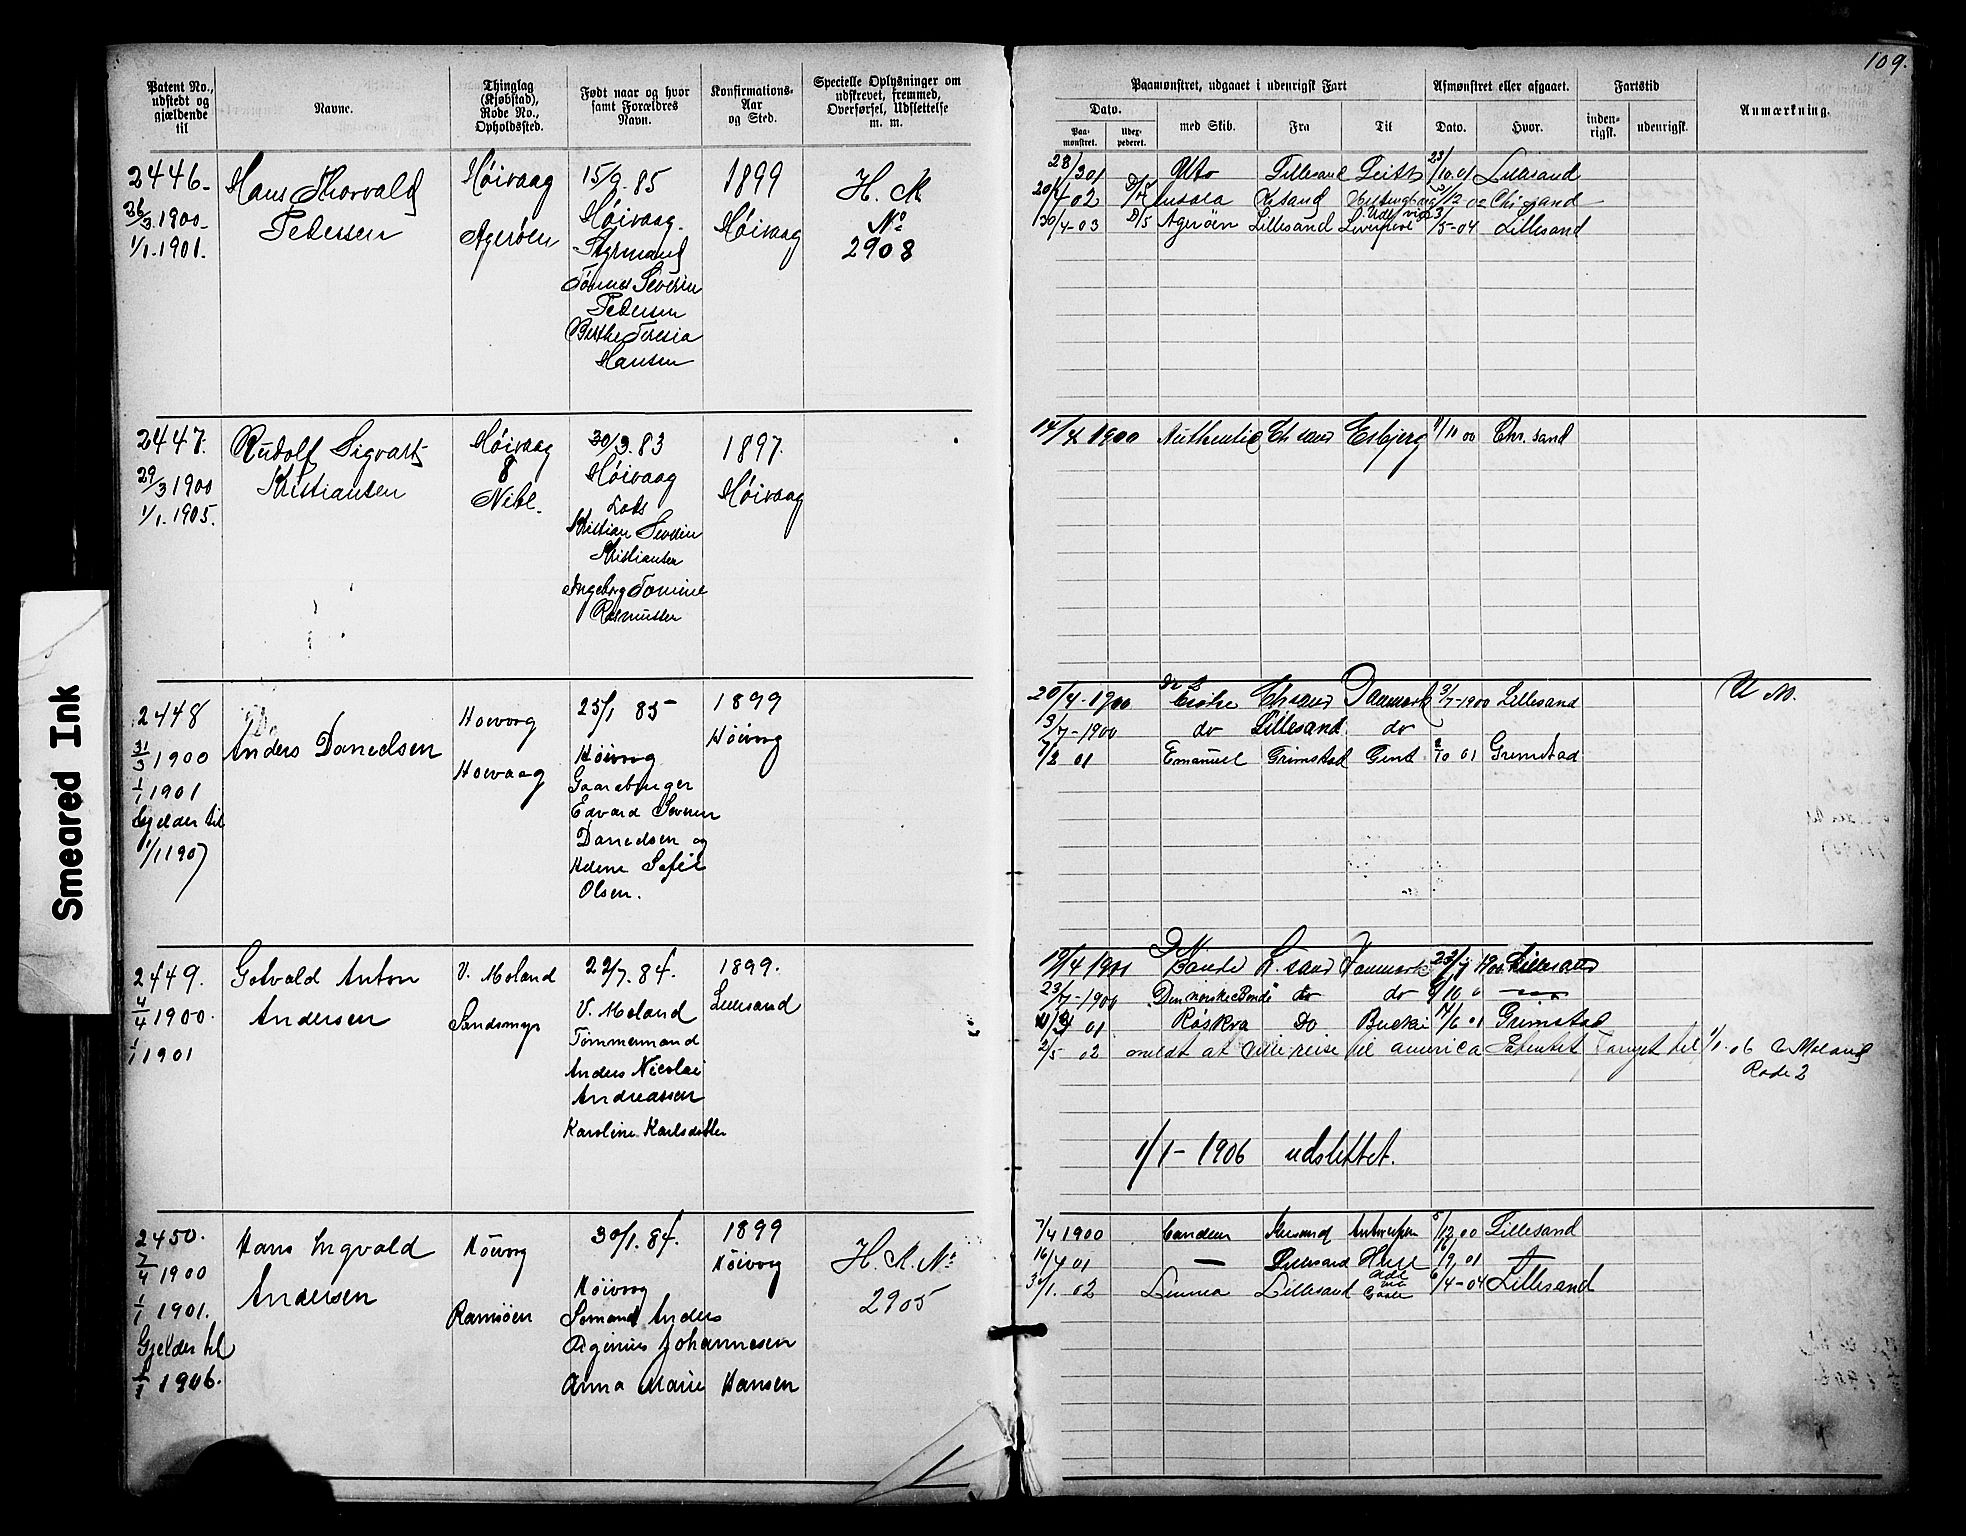 109.
Patent No., udstedt og gjældende til
Navne.
Thinglag (Kjøbstad), Rode No., Opholdssted.
Født naar og hvor samt Forældres Navn.
Konfirmations-Aar og Sted.
Specielle Oplysninger om udskrevet, fremmed, Overførsel, Udslettelse m. m.
Paamønstret, udgaaet i udenrigsk Fart
Dato.
Paa-mønstret.
Uder-pederet.
med Skib.
Fra
Til
Afmønstret eller afgaaet.
Dato.
Hvor.
Fartstid
inden-rigsk.
udenrigsk.
Anmærkning.
2446.
1900.
1/1.1901.
Hans Thorvald
Pedersen
Høivaag
Agerøen
15/9.85
Høivaag.
Styrmand
Tønnes Severin
Pedersen
Berthe Teresia
Hansen
1899
Høivaag
H. R
No
2908
28/3 01 Otto Lillesand Leith 23/10.01 Lillesand
02
30/4-03 8/5 Agerøen Lillesand Liverpool 3/5-04 Lillesand
2447.
29/3 1900
1/1.1905.
Rudolf Sigvart
Kristiansen
Høivaag
8
Nibe.
30/3.83
Høivaag
Lods
Kristian Severin
Kristiansen
Ingeborg Tomine
Rasmussen
1897.
Høivaag
14/4 1900 Authentic Chrsand Esbjerg 11/10 00 Chr.sand
2448
31/3 1900
1/1 1901
Gjelder til
1/1 1907
Anders Danielsen
Hoivoog
Hoivaag
25/1 85
Høivoog
Gaardbruger
Edvard Severin
Danielsen og
Helene Sofie
Olsen.
1899
Høivoog
20/4-1900 Chrsand Danmark 3/7-1900 Lillesand
U M.
3/7-1900 do Lillesand do
7/2 01 Emanuel Grimstad Gent 2/10 01 Grimstad
2449.
4/4 1900.
1/1 1901
Gotvald Anton
Andersen
V. Moland
Sandsmyr
22/7.84.
V. Moland
Tømmermand
Anders Nicolai
Andreassen
Karoline Karlsdatter
1899.
Lillesand
19/4 1900 D. N. Bonde L.sand Danmark 23/7 1900. Lillesand
23/7-1900 Den norske Bonde do do 9/10
01 Røskva Do Buckie 14/6 01 Grimstad
2/5 02 meldt at ville reise til america Patentet fornyet til 1/1.06 V Moland
Rode 2
1/1-1906 udslettet.
2450.
7/4 1900
1/1 1901.
Gjelder til
1/1 1906.
Hans Ingvald
Andersen
Höivog
Ramsöen
30/1.84.
Höivog
Sømand Anders
Johannesen
Anna Marie Hansen
1899
Höivog
H. R. No
2905
7/4 1900 Camden Krsand Antwerpen 5/12 00 Lillesand
16/4 01 — Lillesand Hull 16/9 01 —
02 Linnea Lillesand 6/4-04 Lillesand
Smeared Ink